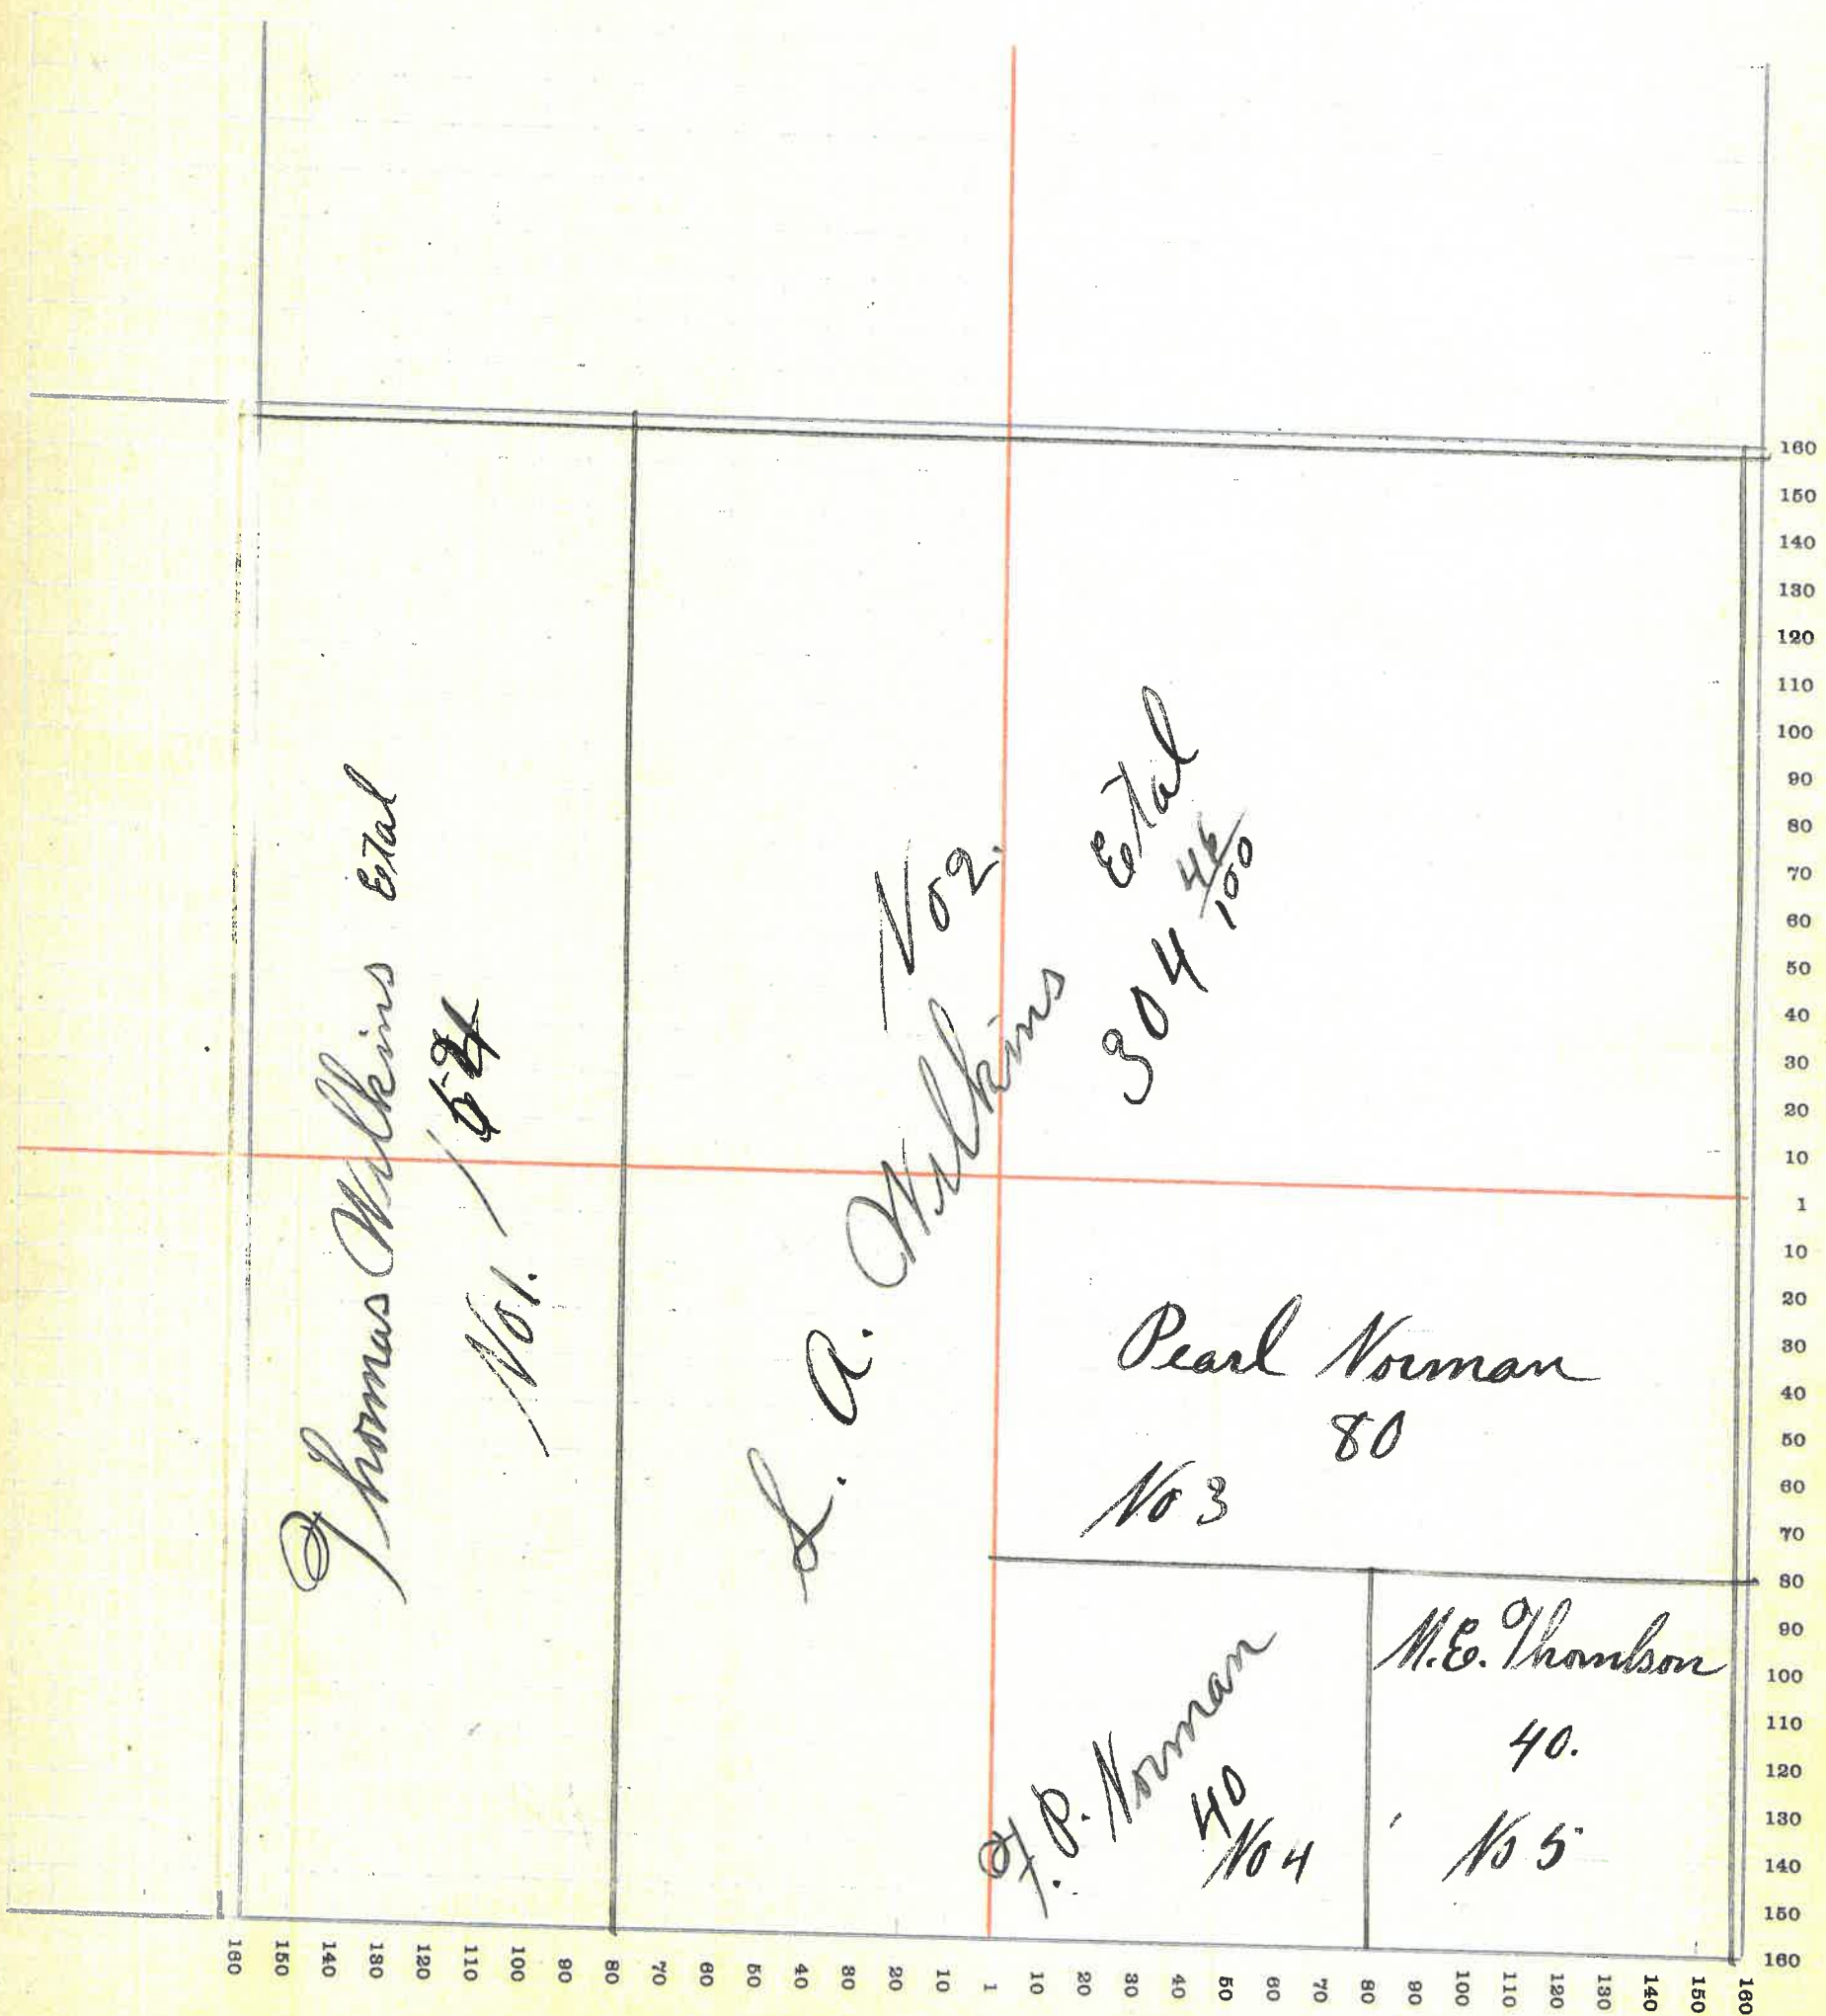 Thomas Wilkins Etal
154
No 1.
No 2.
L. A. Wilkins Etal
304 46/100
Pearl Norman
80
No 3
F. P. Norman
40
No 4
M.E. Thomson
40.
No 5
160
150
140
130
120
110
100
90
80
70
60
50
40
30
20
10
1
10
20
30
40
50
60
70
80
90
100
110
120
130
140
150
160
160 150 140 130 120 110 100 90 80 70 60 50 40 30 20 10 1 10 20 30 40 50 60 70 80 90 100 110 120 130 140 150 160